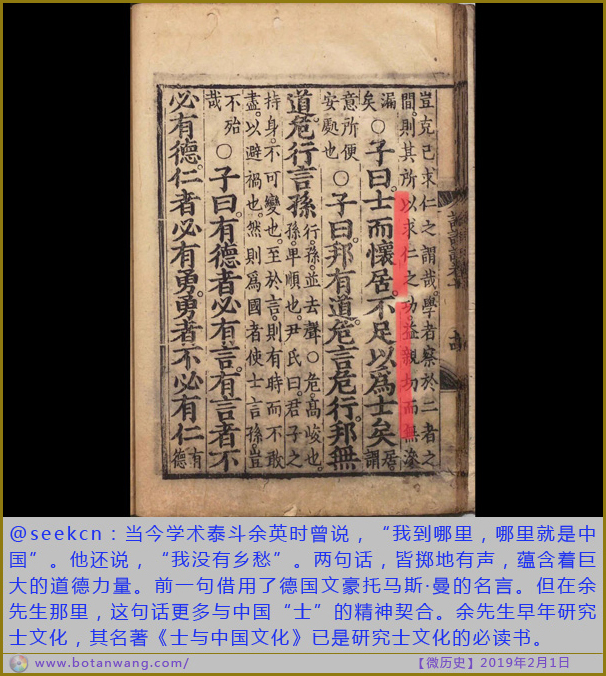 豈克己求仁之謂哉。學者察於二者之
間。則其所以求仁之功。益親切而無滲
漏矣○子曰。士而懷居。不足以爲士矣居謂
意所便安處也○子曰。邦有道。危言危行。邦無
道。危行言孫行。孫。並去聲○危。高峻也。
孫。卑順也。尹氏曰。君子之
持身。不可變也。至於言。則有時而不敢
盡。以避禍也。然則爲國者使士言孫。豈
不殆哉○子曰。有德者必有言。有言者不
必有德。仁者必有勇。勇者不必有仁有德
@seekcn：当今学术泰斗余英时曾说，“我到哪里，哪里就是中
国”。他还说，“我没有乡愁”。两句话，皆掷地有声，蕴含着巨
大的道德力量。前一句借用了德国文豪托马斯·曼的名言。但在余
先生那里，这句话更多与中国“士”的精神契合。余先生早年研究
士文化，其名著《士与中国文化》已是研究士文化的必读书。
www.botanwang.com/
【微历史】2019年2月1日